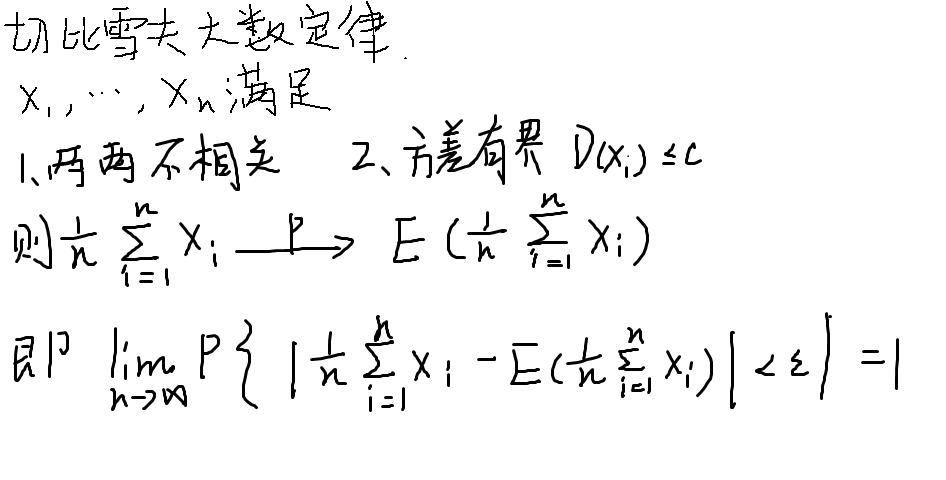 切比雪夫大数定律.
X₁, ⋯, Xₙ满足
1、两两不相关 2、方差有界 D(Xᵢ) ≤ c
则 \frac{1}{n} \sum_{i=1}^{n} X_i \xrightarrow{P} E(\frac{1}{n} \sum_{i=1}^{n} X_i)
即 \lim_{n→∞} P{ | \frac{1}{n} \sum_{i=1}^{n} X_i - E(\frac{1}{n} \sum_{i=1}^{n} X_i) | < ε | = 1